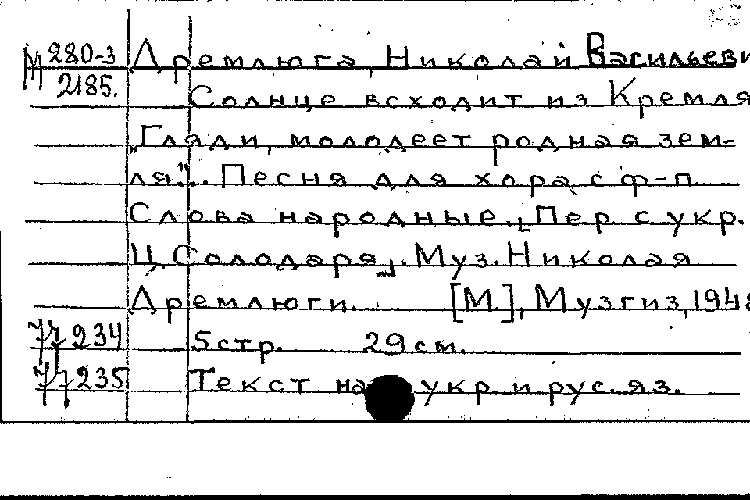 М 280-3 Дремлюга, Николай Васильеви
2185. Солнце всходит из Кремля
„Гляди, молодеет родная зем-
ля"... Песня для хора с ф-п.
Слова народные. [Пер с укр.
Ц. Солодаря]. Муз. Николая
Дремлюги. [М], Музгиз, 1948
234 5 стр. 29 см.
235 Текст на укр и рус. яз.